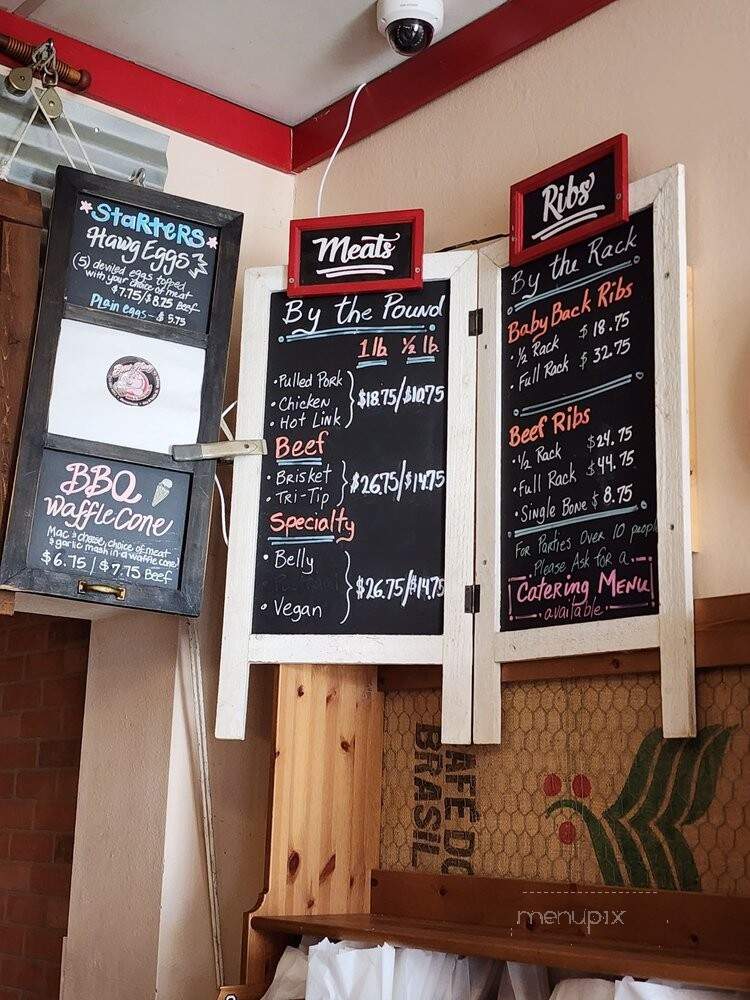 Starters
Hawg Eggs
(5) deviled eggs topped
with your choice of meat
$7.75/$8.75 Beef
Plain eggs - $5.75
BBQ
Waffle Cone
Mac & cheese, choice of meat
& garlic mash in a waffle cone!
$6.75 / $7.75 Beef
Meats
By the Pound
1 lb ½ lb
• Pulled Pork
• Chicken
• Hot Link
$18.75/$10.75
Beef
• Brisket
• Tri-Tip
$26.75/$14.75
Specialty
• Belly
• Vegan
$26.75/$14.75
Ribs
By the Rack
Baby Back Ribs
• ½ Rack $18.75
• Full Rack $32.75
Beef Ribs
• ½ Rack $24.75
• Full Rack $44.75
• Single Bone $8.75
For Parties Over 10 people
Please Ask for a
Catering Menu
available
CAFÉ DO
BRASIL
menupix